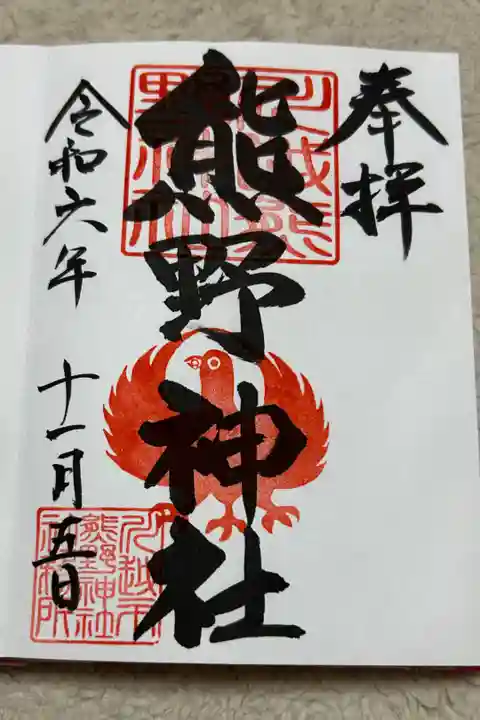 奉拝
熊野神社
令和六年 十一月五日
川越熊
野神社
川越市
熊野神社
社務所